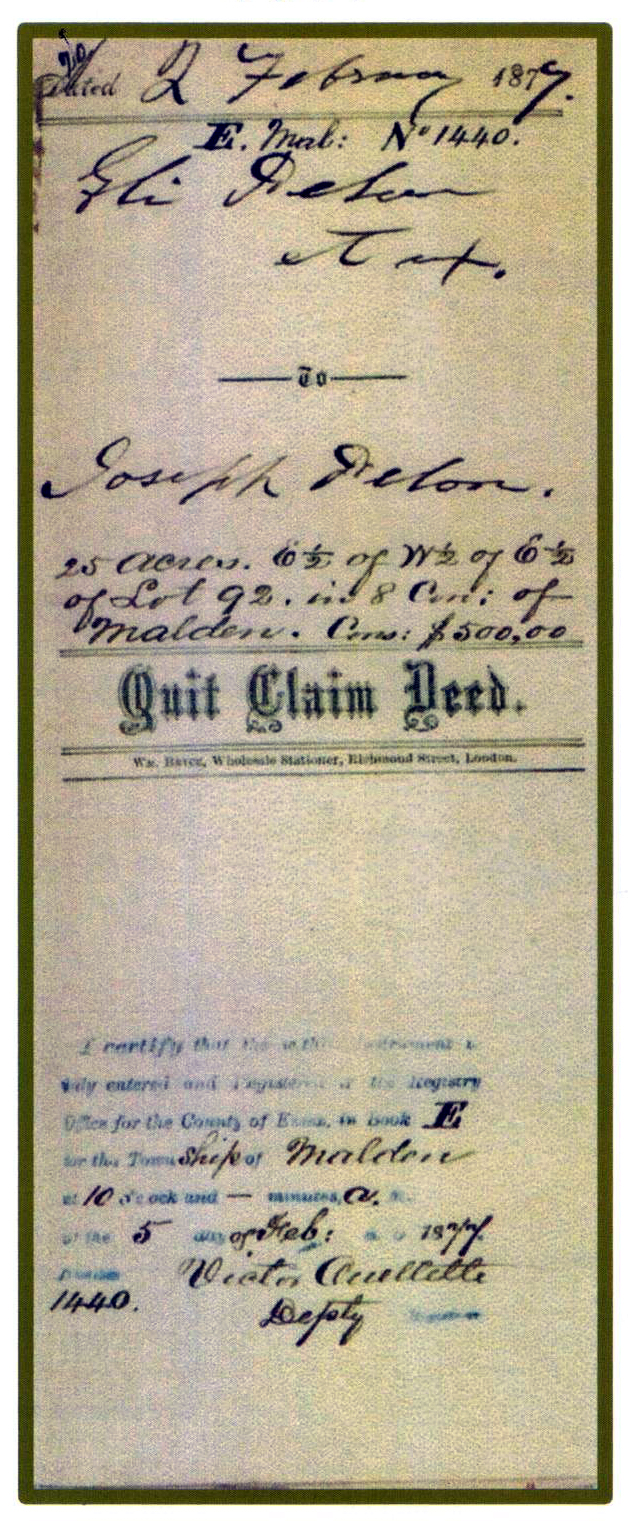 Dated 2 February 1877.
E. Mal: No 1440.
Eli Delon
et ux.
To
Joseph Delon.
25 acres. E½ of W½ of E½
of Lot 92. in 8 Con: of
Malden. Cons: $500,00
Quit Claim Deed.
Wm. Bryce, Wholesale Stationer, Richmond Street, London.
I certify that the within Instrument is
duly entered and Registered in the Registry
Office for the County of Essex, in Book E
for the Township of Malden
at 10 o'clock and — minutes, a. M.
of the 5 day of Feb: A D 1877
Number Victor Ouellette
1440. Depty Registrar